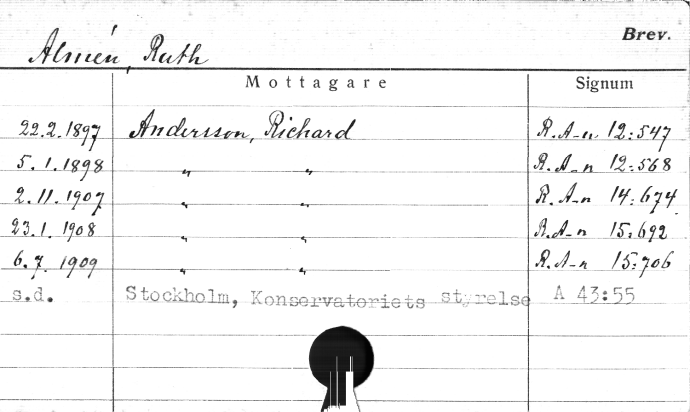 Brev.
Almén, Ruth
Mottagare Signum
22.2.1897 Andersson, Richard R. A-n 12:547
5.1.1898 " " R. A-n 12:568
2.11.1907 " " R. A-n 14:674
23.1.1908 " " R. A-n 15:692
6.7.1909 " " R. A-n 15:706
s.d. Stockholm, Konservatoriets styrelse A 43:55